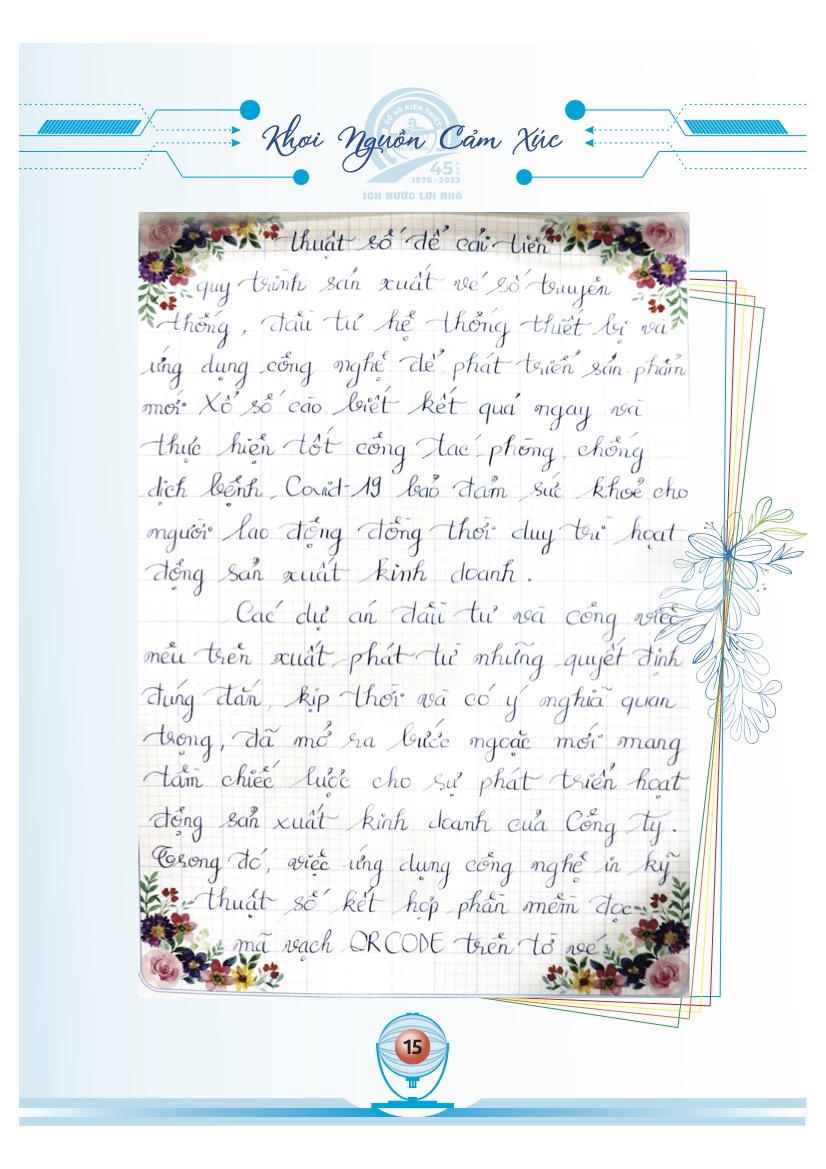 Khơi Nguồn Cảm Xúc
XỔ SỐ KIẾN THIẾT
45 NĂM
1978 - 2023
ÍCH NƯỚC LỢI NHÀ
thuật số để cải tiến
quy trình sản xuất vé số truyền
thống, đầu tư hệ thống thiết bị và
ứng dụng công nghệ để phát triển sản phẩm
mới Xổ số cào biết kết quả ngay và
thực hiện tốt công tác phòng, chống
dịch bệnh Covid-19 bảo đảm sức khoẻ cho
người lao động đồng thời duy trì hoạt
động sản xuất kinh doanh.
Các dự án đầu tư và công việc
nêu trên xuất phát từ những quyết định
đúng đắn, kịp thời và có ý nghĩa quan
trọng, đã mở ra bước ngoặc mới mang
tầm chiếc lược cho sự phát triển hoạt
động sản xuất kinh doanh của Công ty.
Trong đó, việc ứng dụng công nghệ in kỹ
thuật số kết hợp phần mềm đọc
mã vạch QR CODE trên tờ vé
15